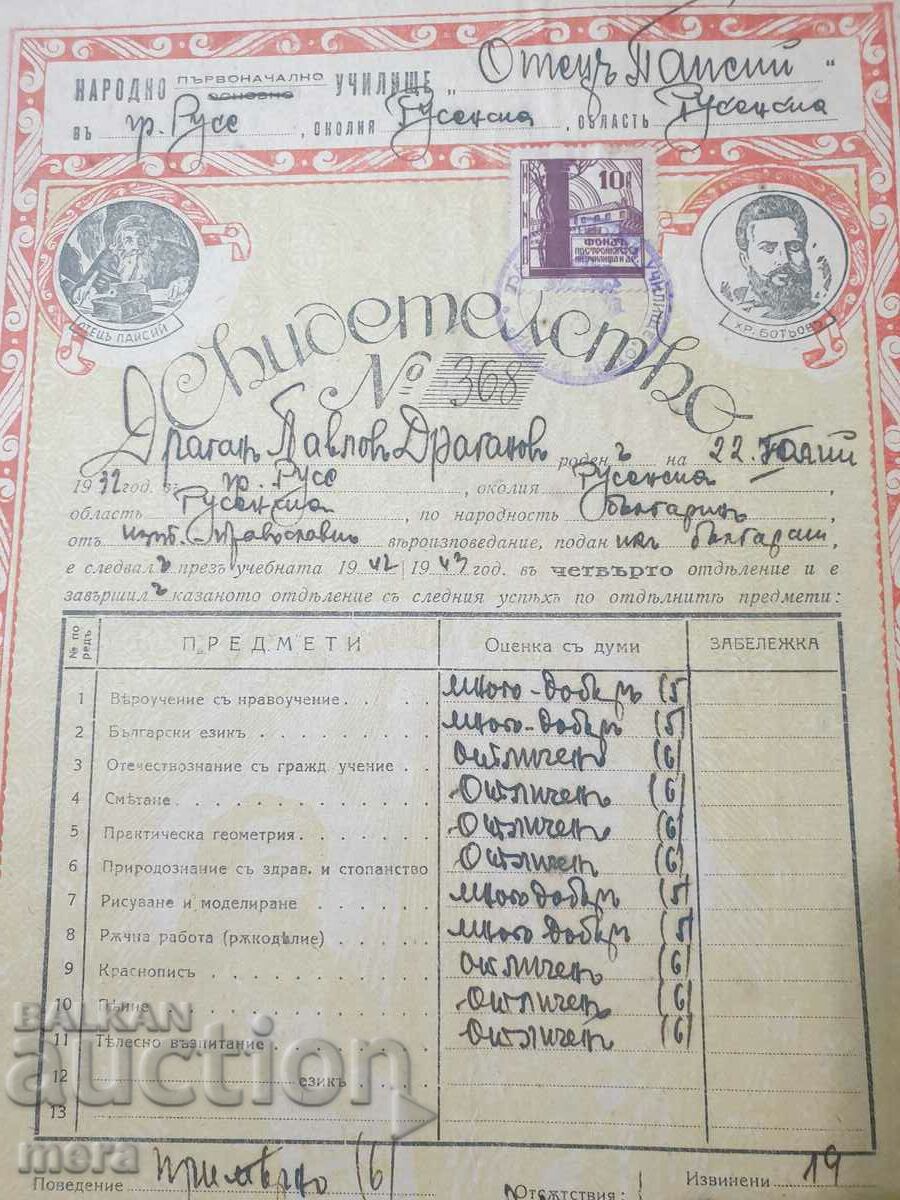 НАРОДНО ПЪРВОНАЧАЛНО ОСНОВНО УЧИЛИЩЕ „Отецъ Паисий“
въ гр. Русе, околия Русенска, область Русенска
10
ФОНДЪ
ПОСТРОЙКА НА
УЧИЛИЩА И ДР.
ОТЕЦЪ ПАИСИЙ
ХР. БОТЬОВЪ
Свидетелство
№ 368
Драганъ Павловъ Драгановъ роденъ на 22.
1932 год. въ гр. Русе, околия Русенска,
область Русенска, по народность българинъ,
отъ изт.-православно вѣроизповедание, подан
е следвалъ презъ учебната 1942/1943 год. въ четвърто отдѣление и е
завършилъ казаното отдѣление съ следния успѣхъ по отдѣлнитѣ предмети:
№ по редъ ПРЕДМЕТИ Оценка съ думи ЗАБЕЛЕЖКА
1 Вѣроучение съ нравоучение много-добъръ (5)
2 Български езикъ много-добъръ (5)
3 Отечествознание съ гражд. учение отличенъ (6)
4 Смѣтане отличенъ (6)
5 Практическа геометрия отличенъ (6)
6 Природознание съ здрав. и стопанство отличенъ (6)
7 Рисуване и моделиране много добъръ (5)
8 Рѫчна работа (рѫкодѣлие) много добъръ (5)
9 Краснописъ отличенъ (6)
10 Пѣние отличенъ (6)
11 Тѣлесно възпитание отличенъ (6)
12 езикъ
13
Поведение примѣрно (6) Отсѫтствия: Извинени 19
BALKAN
auction
mera